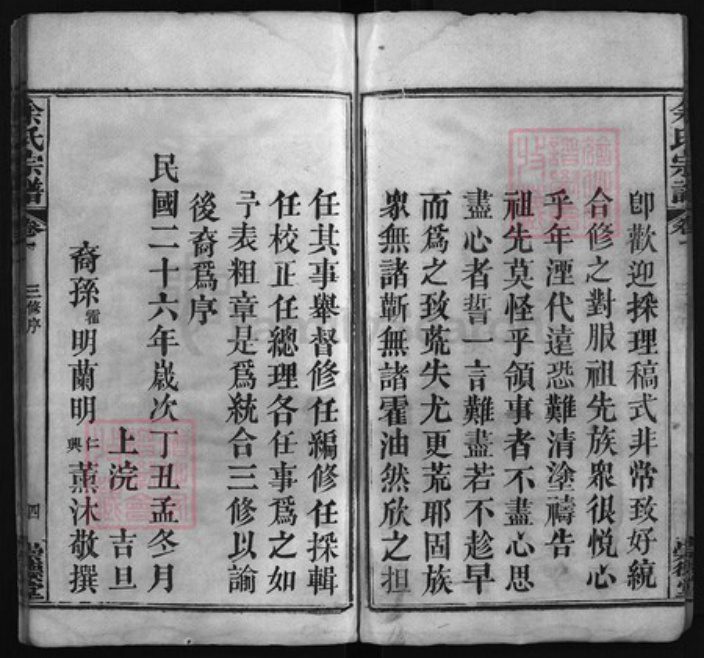 余氏宗譜
卷一
卽歡迎採理稿式非常致好統
合修之對服祖先族衆很悦心
乎年湮代遠恐難清塗禱告
祖先莫怪乎領事者不盡心思
盡心者誓一言難盡若不趁早
而爲之致荒失尤更荒耶固族
衆無諸蘄無諸霍油然欣之担
任其事舉督修任編修任採輯
任校正任總理各任事爲之如
予表粗章是爲統合三修以諭
後裔爲序
民國二十六年歲次丁丑孟冬月
上浣 吉旦
裔孫霍明蘭明仁興薰沐敬撰
余氏宗譜
卷一
三修序
四